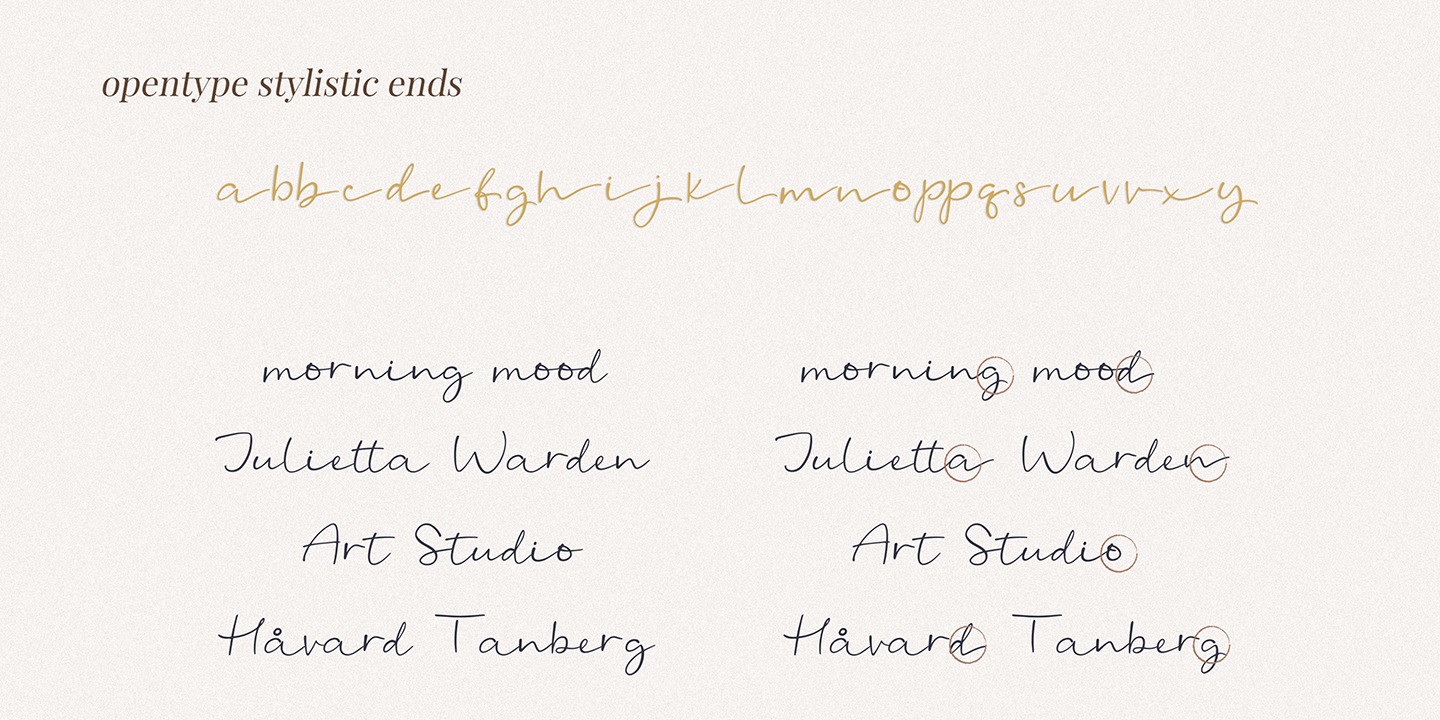 opentype stylistic ends
abbcdefghijklmnoppqsuvvxy
morning mood
morning mood
Julietta Warden
Julietta Warden
Art Studio
Art Studio
Håvard Tanberg
Håvard Tanberg